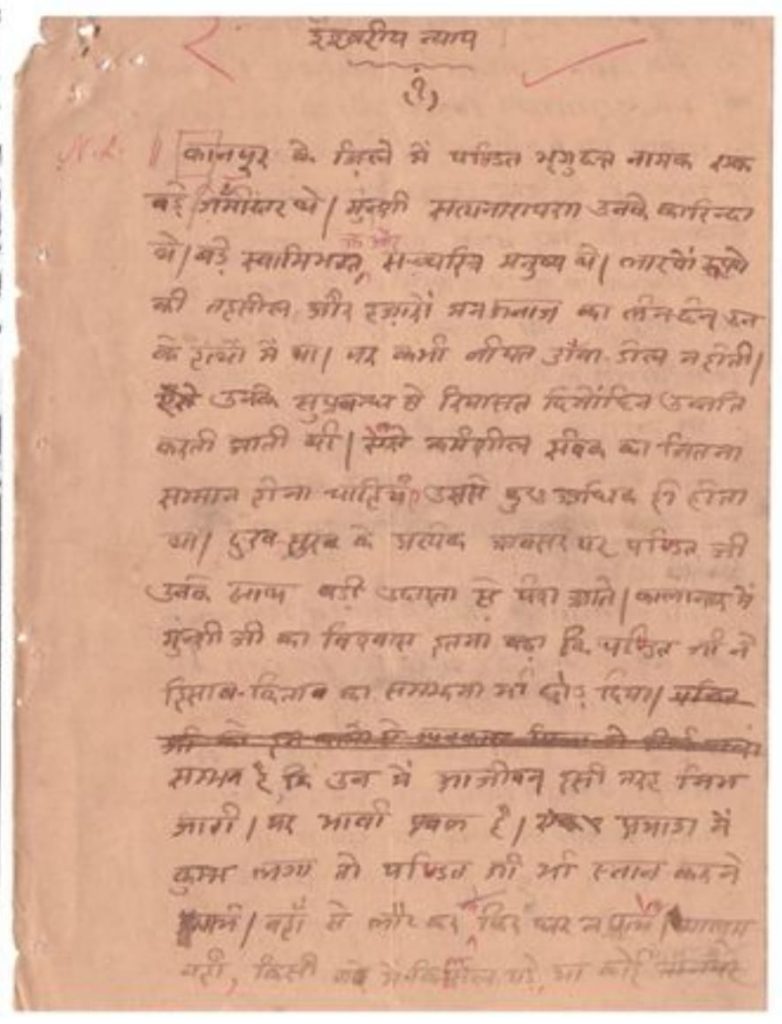 ईश्वरीय न्याय
(१)
कानपुर के जिले में पण्डित भृगुदत्त नामक एक
बड़े जमींदार थे। मुन्शी सत्यनारायण उनके कारिन्दा
थे। बड़े स्वामिभक्त और सच्चरित्र मनुष्य थे। लाखों रूपये
की तहसील और हजारों मन अनाज का लेन-देन उन
के हाथों में था। पर कभी नीयत डाँवा-डोल न होती।
उनके सुप्रबन्ध से रियासत दिनोंदिन उन्नति
करती जाती थी। ऐसे कर्मशील सेवक का जितना
सम्मान होना चाहिये उससे कुछ अधिक ही होता
था। दुख-सुख के प्रत्येक अवसर पर पण्डित जी
उनके साथ बड़ी उदारता से पेश आते। कालान्तर में
मुन्शी जी का विश्वास इतना बढ़ा कि पण्डित जी ने
हिसाब-किताब का समझना भी छोड़ दिया।
सम्भव है, कि उन में आजीवन इसी तरह निभ
जाती। पर भावी प्रबल है। प्रयाग में
कुम्भ लगा तो पण्डित जी भी स्नान करने
वहाँ से लौट कर फिर घर न
नहीं, किसी में पड़े, या कोई